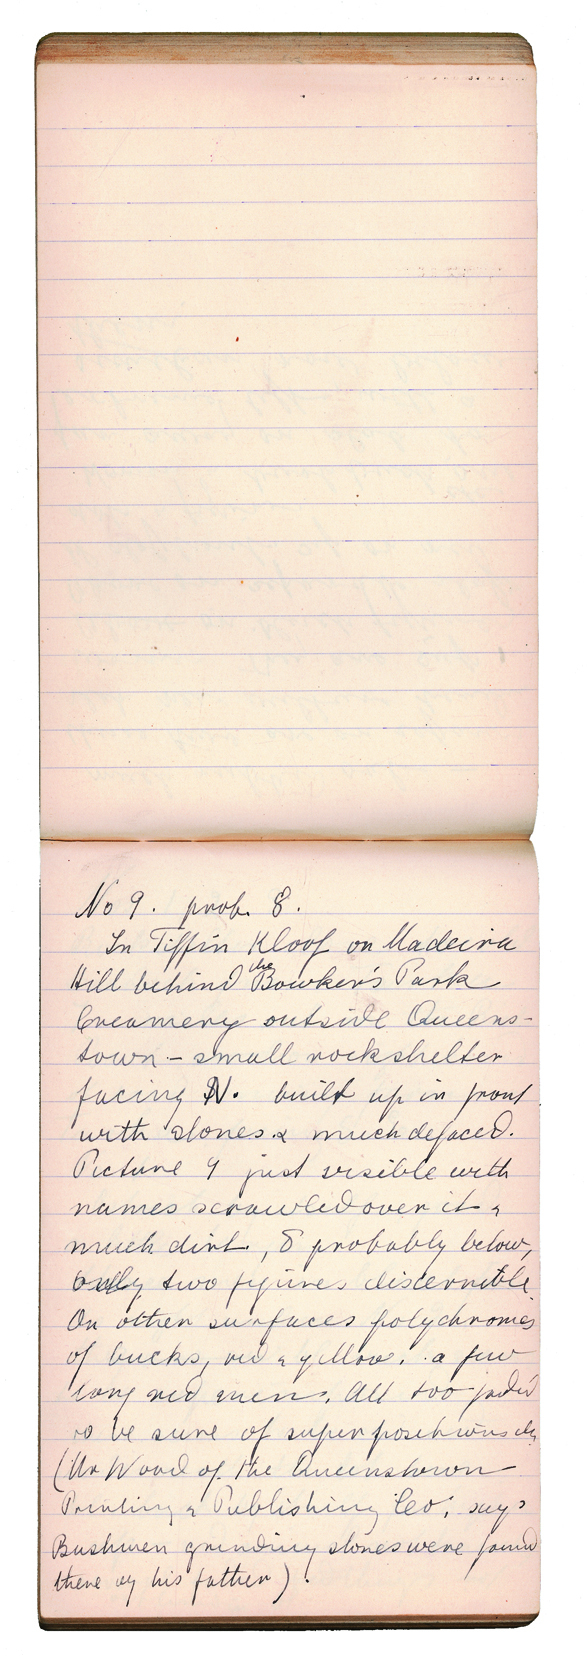 No 9. prob. 8.
In Tiffin Kloof on Madeira
Hill behind the Bowker's Park
Creamery outside Queens-
town - small rockshelter
facing N. built up in front
with stones & much defaced.
Picture 9 just visible with
names scrawled over it &
much dirt, 8 probably below,
only two figures discernible
On other surfaces polychromes
of bucks, red & yellow. a few
long red mens. All too faded
to be sure of superpositions
(Mr Wood of the Queenstown
Printing & Publishing Co. says
Bushmen grinding stones were found
there by his father).